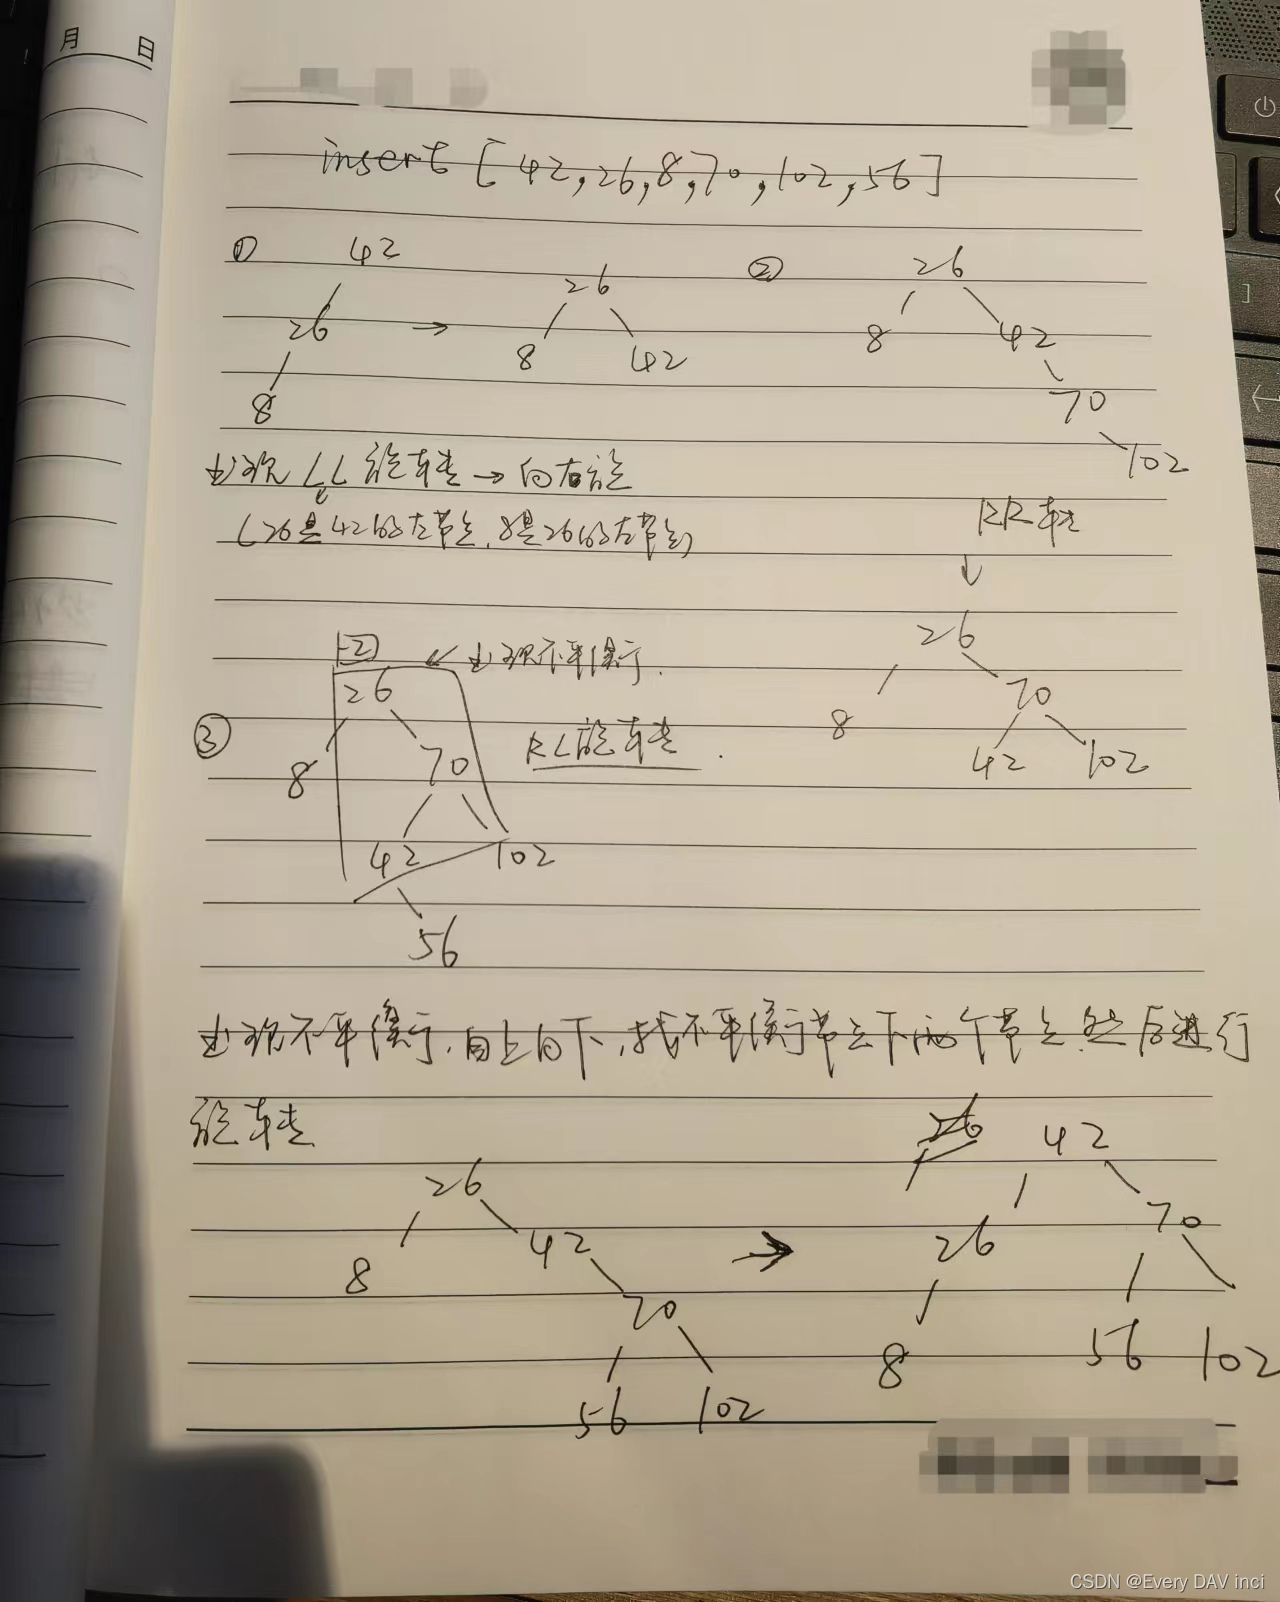 月 日
insert [42,26,8,70,102,56]
① 42 26 ② 26
26 → 8 42 8 42
8 70
102
出现LL旋转→向右旋
(26是42的左节点,8是26的左节点)
RR转
↓
26
8 70
42 102
-2 ← 出现不平衡了.
③ 26
8 70 RL旋转.
42 102
56
出现不平衡了.自上向下,找不平衡节点下两个节点.然后进行
旋转
26 → 42
8 42 26 70
70 8 56 102
56 102
CSDN @Every DAV inci